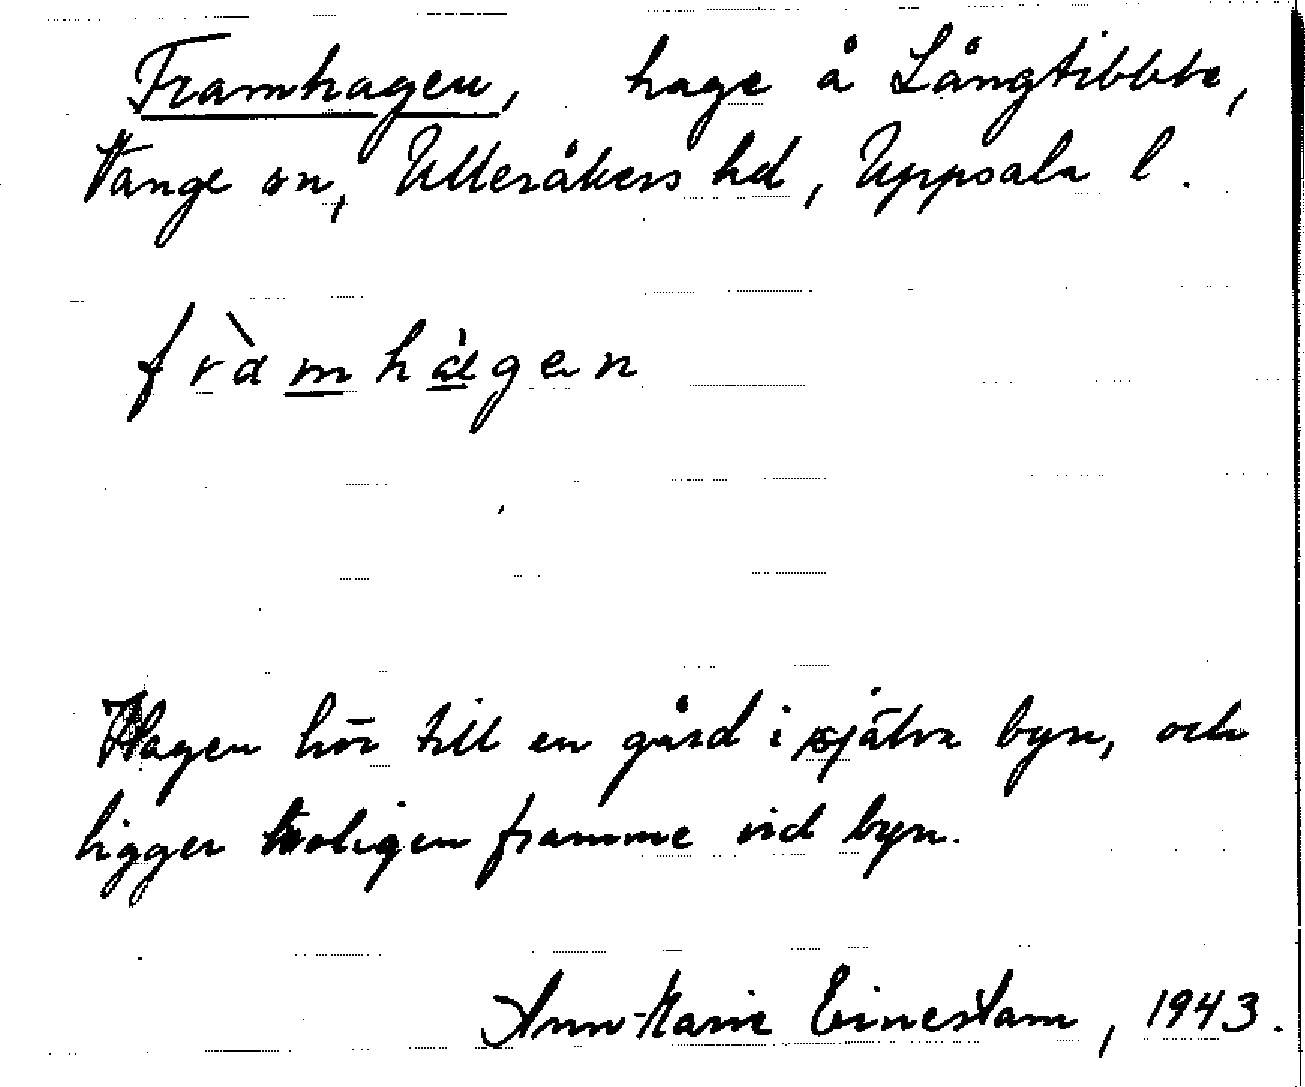 Framhagen, hage å Långtibble,
Vänge sn, Ulleråkers hd, Uppsala l.
fràmhàgen
Hagen hör till en gård i själva byn, och
ligger troligen framme vid byn.
Ann-Marie Einestam, 1943.